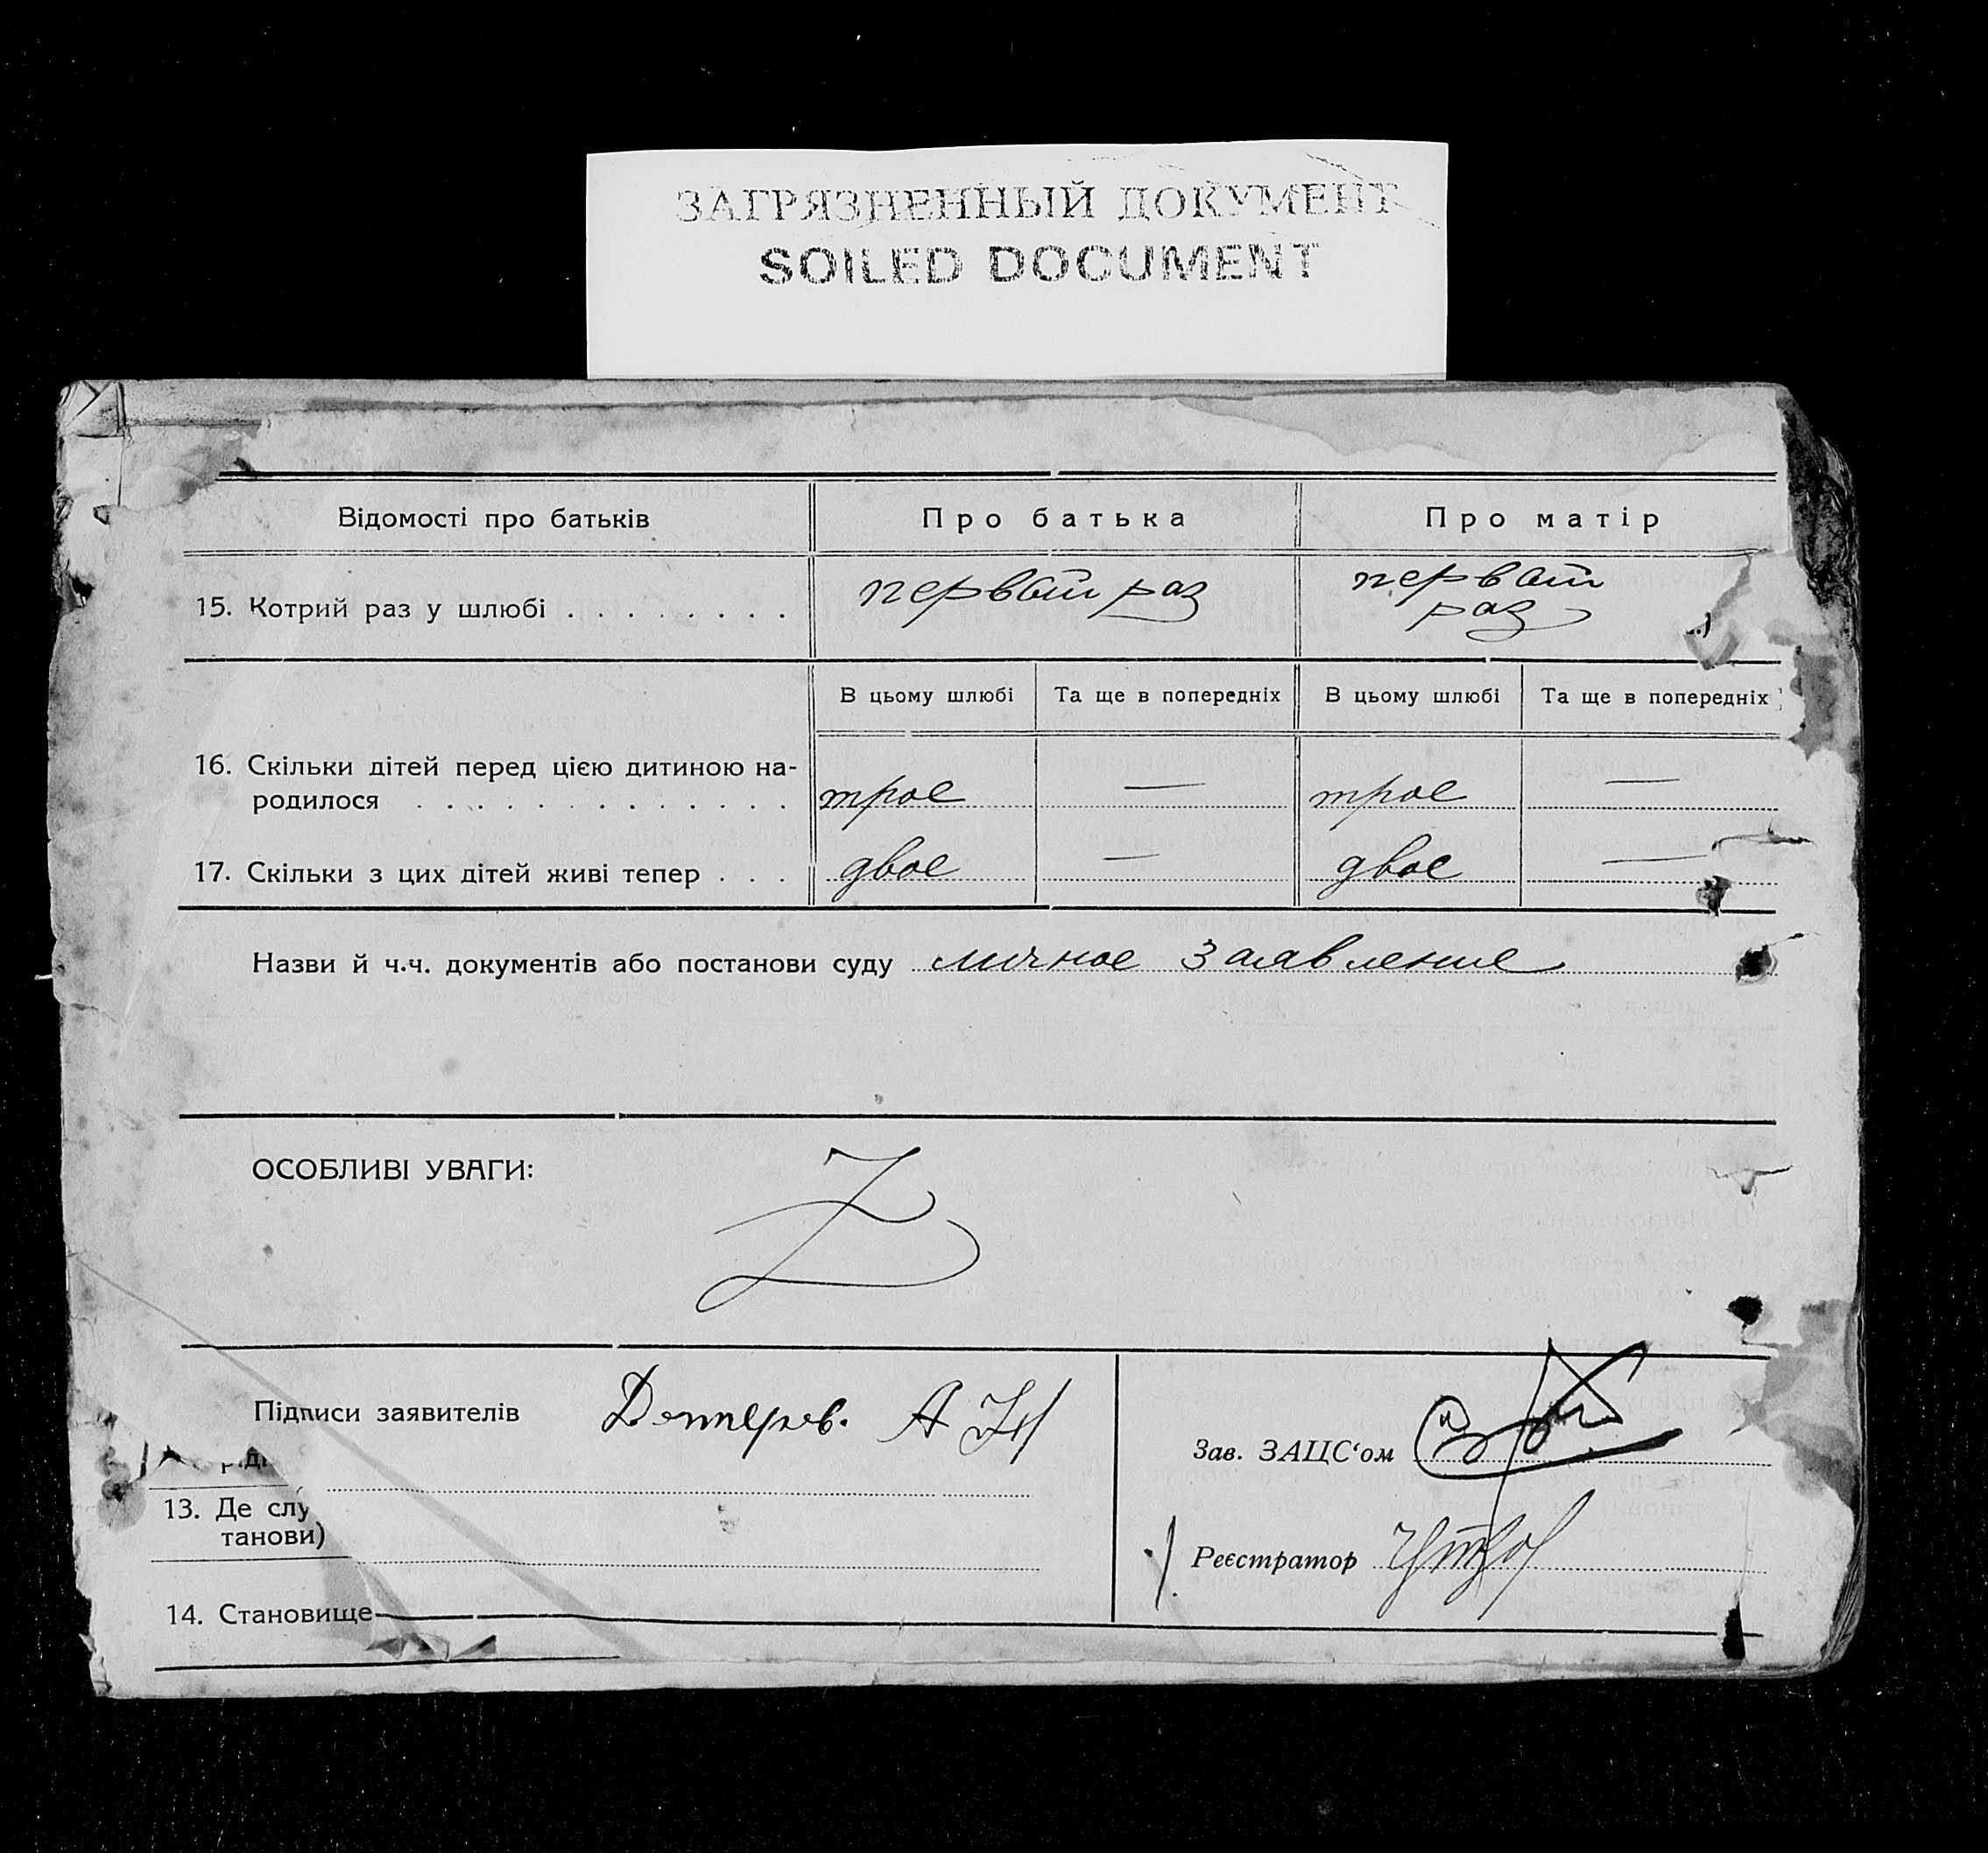 ЗАГРЯЗНЕННЫЙ ДОКУМЕНТ
SOILED DOCUMENT
Відомості про батьків Про батька Про матір
15. Котрий раз у шлюбі . . . . . . . . первый раз первый раз
В цьому шлюбі Та ще в попередніх В цьому шлюбі Та ще в попередніх
16. Скільки дітей перед цією дитиною на-
родилося . . . . . . . . . . . . . трое — трое —
17. Скільки з цих дітей живі тепер . . . двое — двое —
Назви й ч.ч. документів або постанови суду личное заявление
ОСОБЛИВІ УВАГИ:
Z
Підписи заявителів
Зав. ЗАЦС‘ом
13. Де слу
танови)
Реєстратор
14. Становище